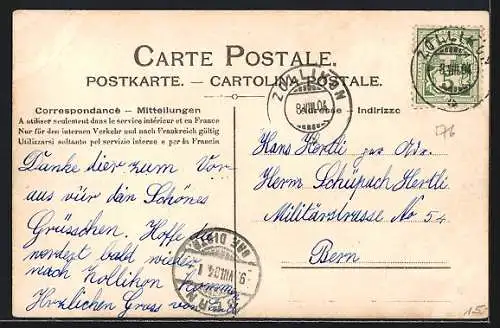 CARTE POSTALE.
POSTKARTE. — CARTOLINA POSTALE.
Correspondance — Mitteilungen
A utiliser seulement dans le service intérieur et en France
Nur für den internen Verkehr und nach Frankreich gültig
Utilizzarsi soltanto pel servizio interno e per la Francia
Adresse - Indirizzo
ZOLLIKON
8.VIII.04
ZOLLIKON
8.VIII.04
5
176
Danke dier zum Vor
aus vür dän Schönes
Grüsschen. Hoffe du
werdest bald wieder
nach Zollikon kommen
Herzlichen Gruss von
Hans Hertli
Herrn Schüpach Hertli
Militärstrasse No 54
Bern
BERN
9.VIII.04
15.-